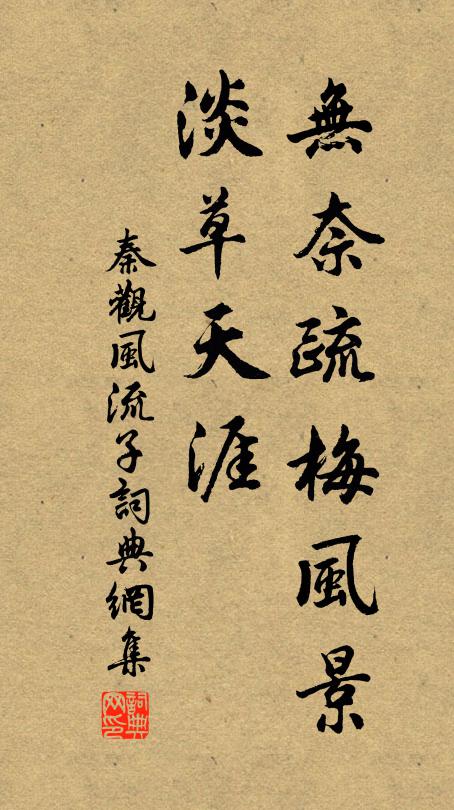 無奈疏梅風景
淡草天涯
秦觀風流子詞典網集
詞典
网印